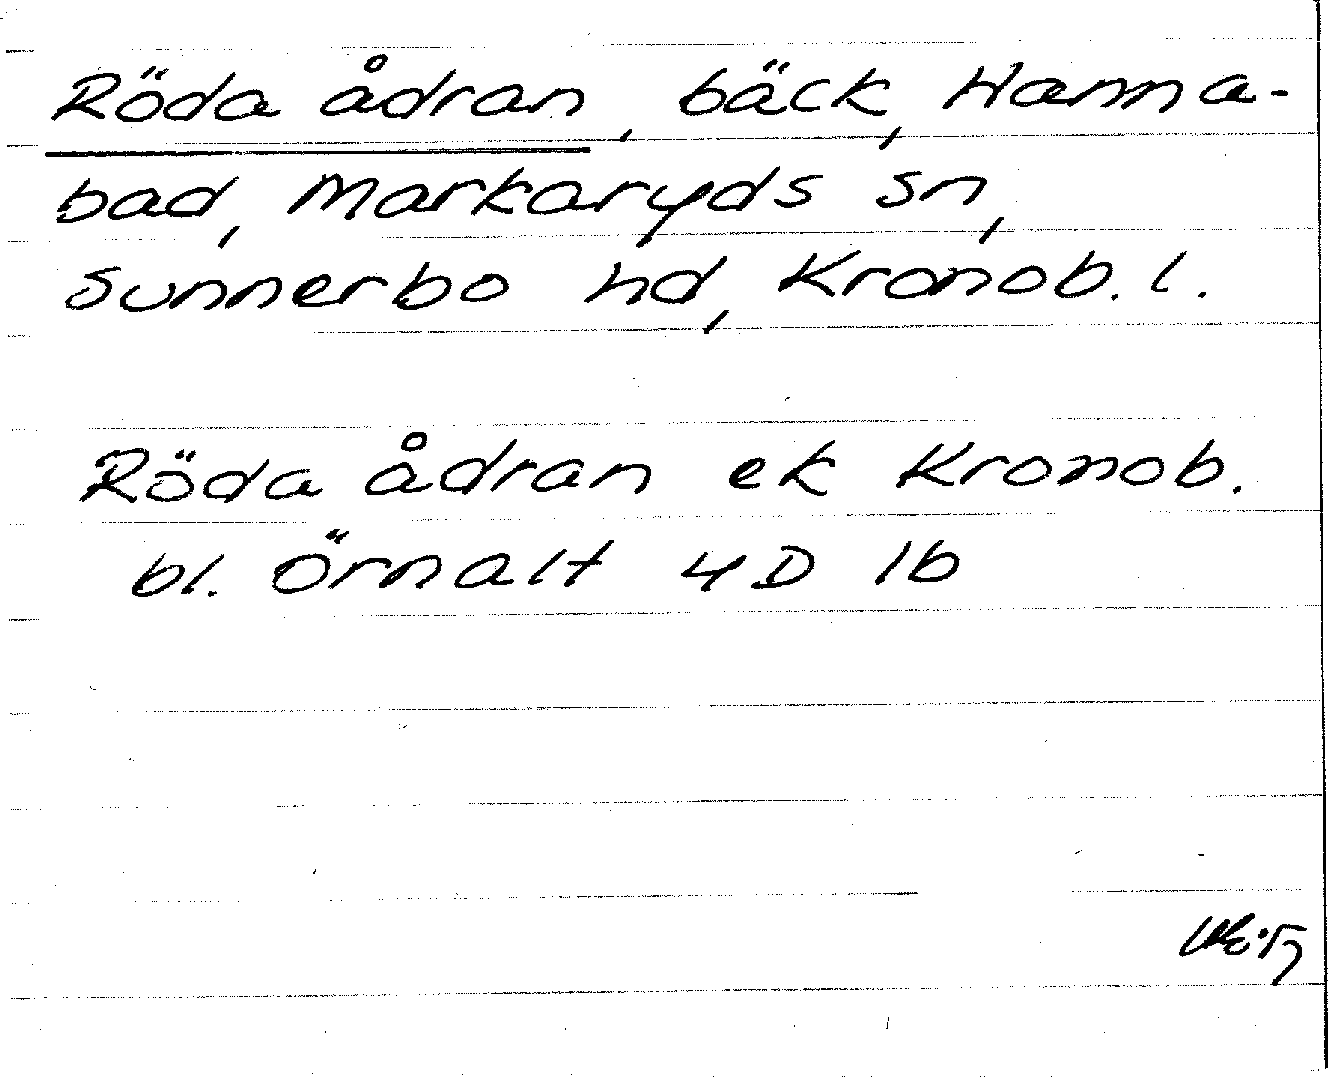 Röda ådran, bäck, Hanna-
bad, Markaryds sn,
Sunnerbo hd, Kronob. l.
Röda ådran ek Kronob.
bl. Örnalt 4D 1b